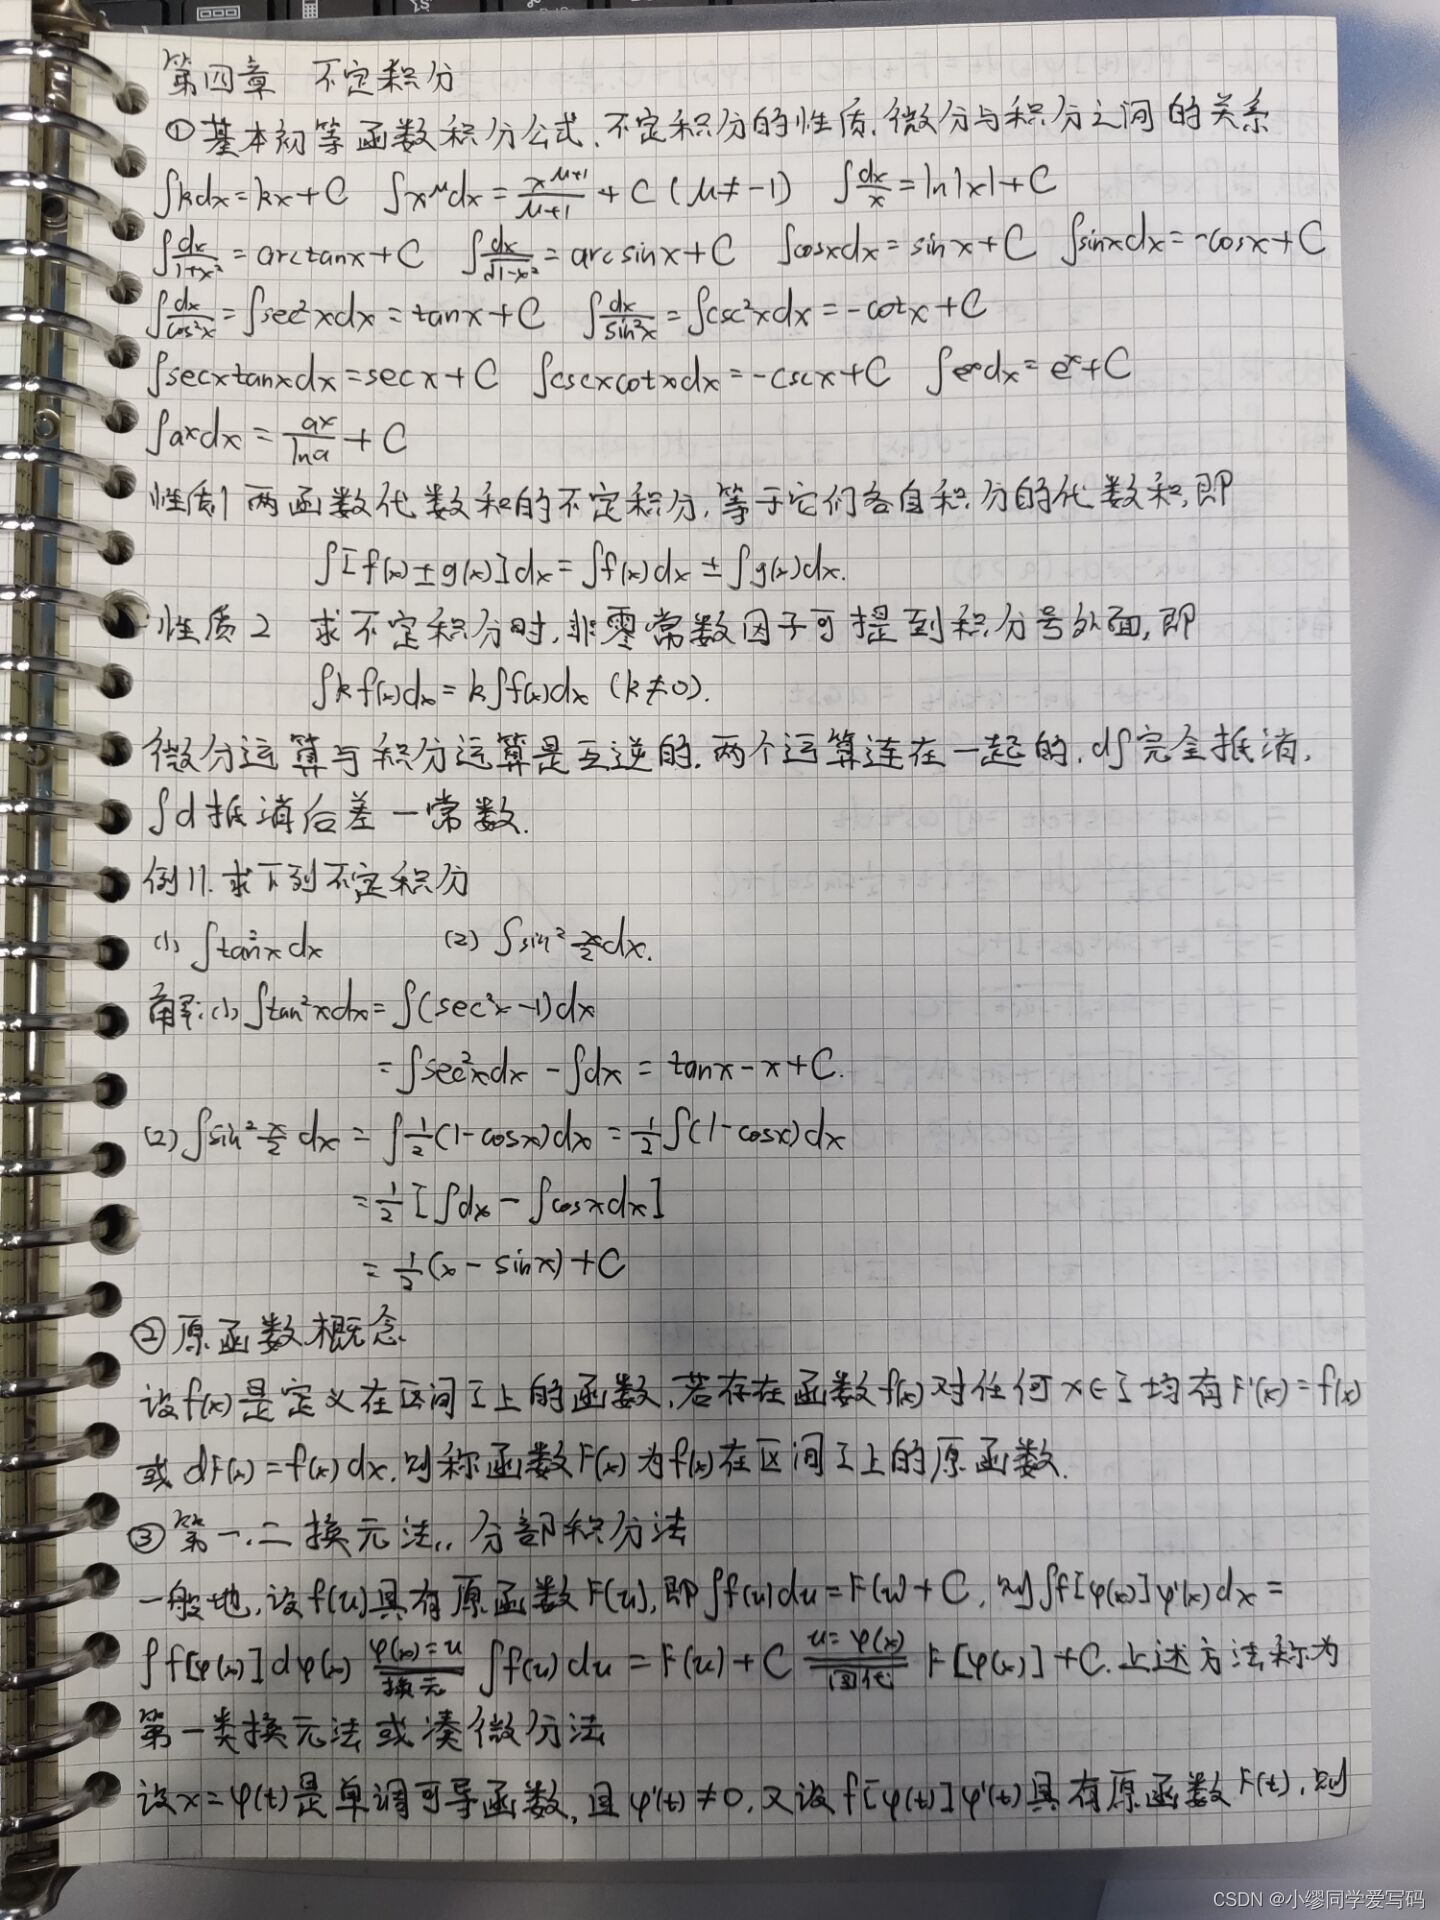 第四章 不定积分
①基本初等函数积分公式、不定积分的性质、微分与积分之间的关系
∫kdx=kx+C ∫x^μdx=x^(μ+1)/(μ+1)+C (μ≠-1) ∫dx/x=ln|x|+C
∫dx/(1+x²)=arctanx+C ∫dx/√(1-x²)=arcsinx+C ∫cosxdx=sinx+C ∫sinxdx=-cosx+C
∫dx/cos²x=∫sec²xdx=tanx+C ∫dx/sin²x=∫csc²xdx=-cotx+C
∫secxtanxdx=secx+C ∫cscxcotxdx=-cscx+C ∫e^xdx=e^x+C
∫axdx=ax/lna+C
性质1 两函数代数和的不定积分,等于它们各自积分的代数和,即
∫[f(x)±g(x)]dx=∫f(x)dx±∫g(x)dx.
性质2 求不定积分时,非零常数因子可提到积分号外面,即
∫kf(x)dx=k∫f(x)dx (k≠0).
微分运算与积分运算是互逆的.两个运算连在一起的,d∫完全抵消,
∫d抵消后差一常数.
例11.求下列不定积分
(1) ∫tan²xdx (2) ∫sin² x/2 dx.
解:(1) ∫tan²xdx=∫(sec²x-1)dx
=∫sec²xdx-∫dx=tanx-x+C.
(2) ∫sin² x/2 dx=∫1/2(1-cosx)dx=1/2∫(1-cosx)dx
=1/2[∫dx-∫cosxdx]
=1/2(x-sinx)+C
②原函数概念
设f(x)是定义在区间I上的函数,若存在函数f(x)对任何x∈I均有F'(x)=f(x)
或dF(x)=f(x)dx,则称函数F(x)为f(x)在区间I上的原函数.
③第一、二换元法,, 分部积分法
一般地,设f(u)具有原函数F(u),即∫f(u)du=F(u)+C,则∫f[φ(x)]φ'(x)dx=
∫f[φ(x)]dφ(x) φ(x)=u 换元 ∫f(u)du=F(u)+C u=φ(x) 回代 F[φ(x)]+C.上述方法称为
第一类换元法或凑微分法
设x=φ(t)是单调可导函数,且φ'(t)≠0,又设f[φ(t)]φ'(t)具有原函数F(t),则
CSDN @小缪同学爱写码